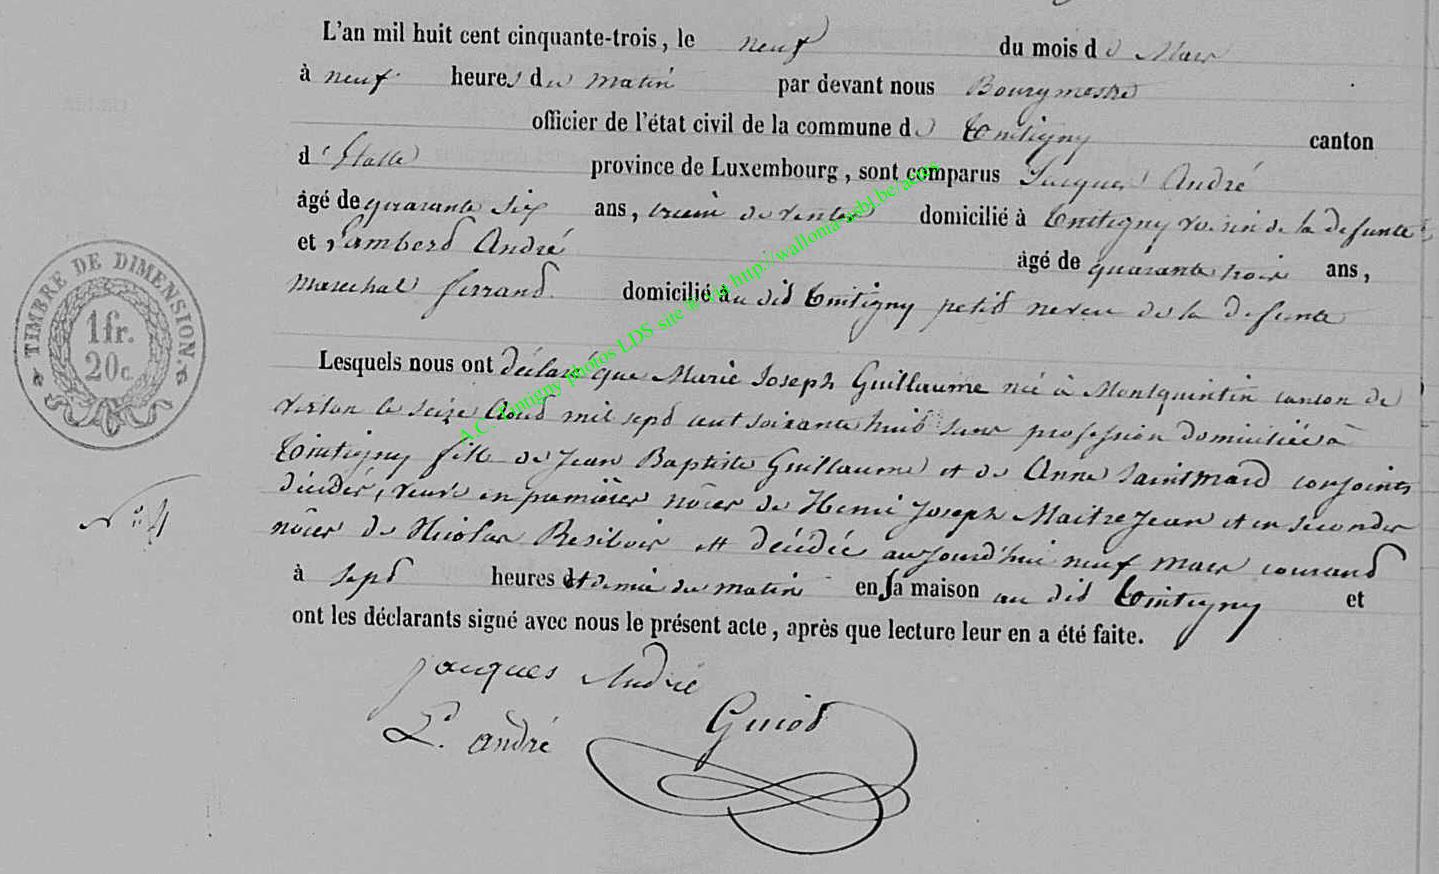 L'an mil huit cent cinquante-trois, le neuf du mois de Mars
à neuf heures du matin par devant nous Bourgmestre
officier de l'état civil de la commune de Tintigny canton
d'Etalle province de Luxembourg, sont comparus Jacques André
âgé de quarante six ans, domicilié à Tintigny voisin de la defunte
et Lambert André âgé de quarante trois ans,
marechal ferrand domicilié au dit Tintigny petit neveu de la defunte
Lesquels nous ont déclaré que Marie Joseph Guillaume née à Montquintin canton de
virton le seize Aout mil sept cent soixante huit sans profession domiciliée à
Tintigny fille de Jean Baptiste Guillaume et de Anne Saintmard conjoints
décédés, veuve en premières nôces de Henri Joseph Maitrejean et en secondes
nôces de Nicolas Resibois est décédée aujourd'hui neuf mars courand
à sept heures et demie du matin en sa maison au dit Tintigny et
ont les déclarants signé avec nous le présent acte, après que lecture leur en a été faite.
Jacques André
Guiot
L. André
TIMBRE DE DIMENSION.
1fr.
20c.
N° 4
A.C. Tintigny photos LDS site ® via http://wallonia-asbl.be/actes